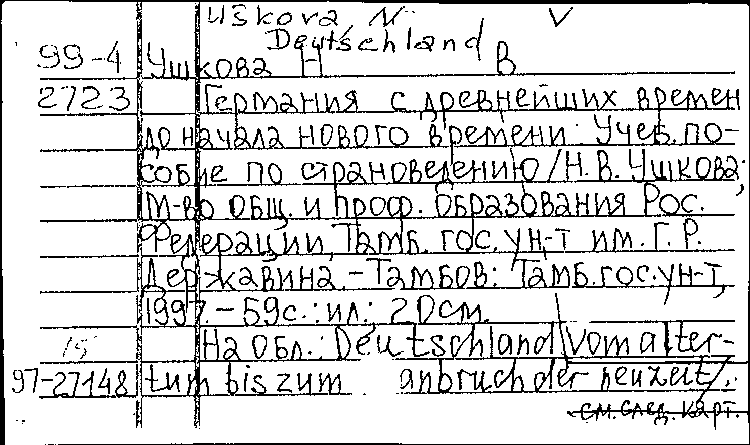 Uškova, N. V
Deutschland
99-4 Ушкова Н В
2723 Германия с древнейших времен
до начала нового времени: Учеб. по-
собие по страноведению / Н. В. Ушкова;
М-во общ. и проф. образования Рос.
Федерации, Тамб. гос. ун-т им. Г. Р.
Державина. - Тамбов: Тамб. гос. ун-т,
1997. - 59 с.: ил.; 20 см.
15 На обл.: Deutschland vom alter-
97-27148 tum bis zum anbruch der neuzeit.
см. след. карт.